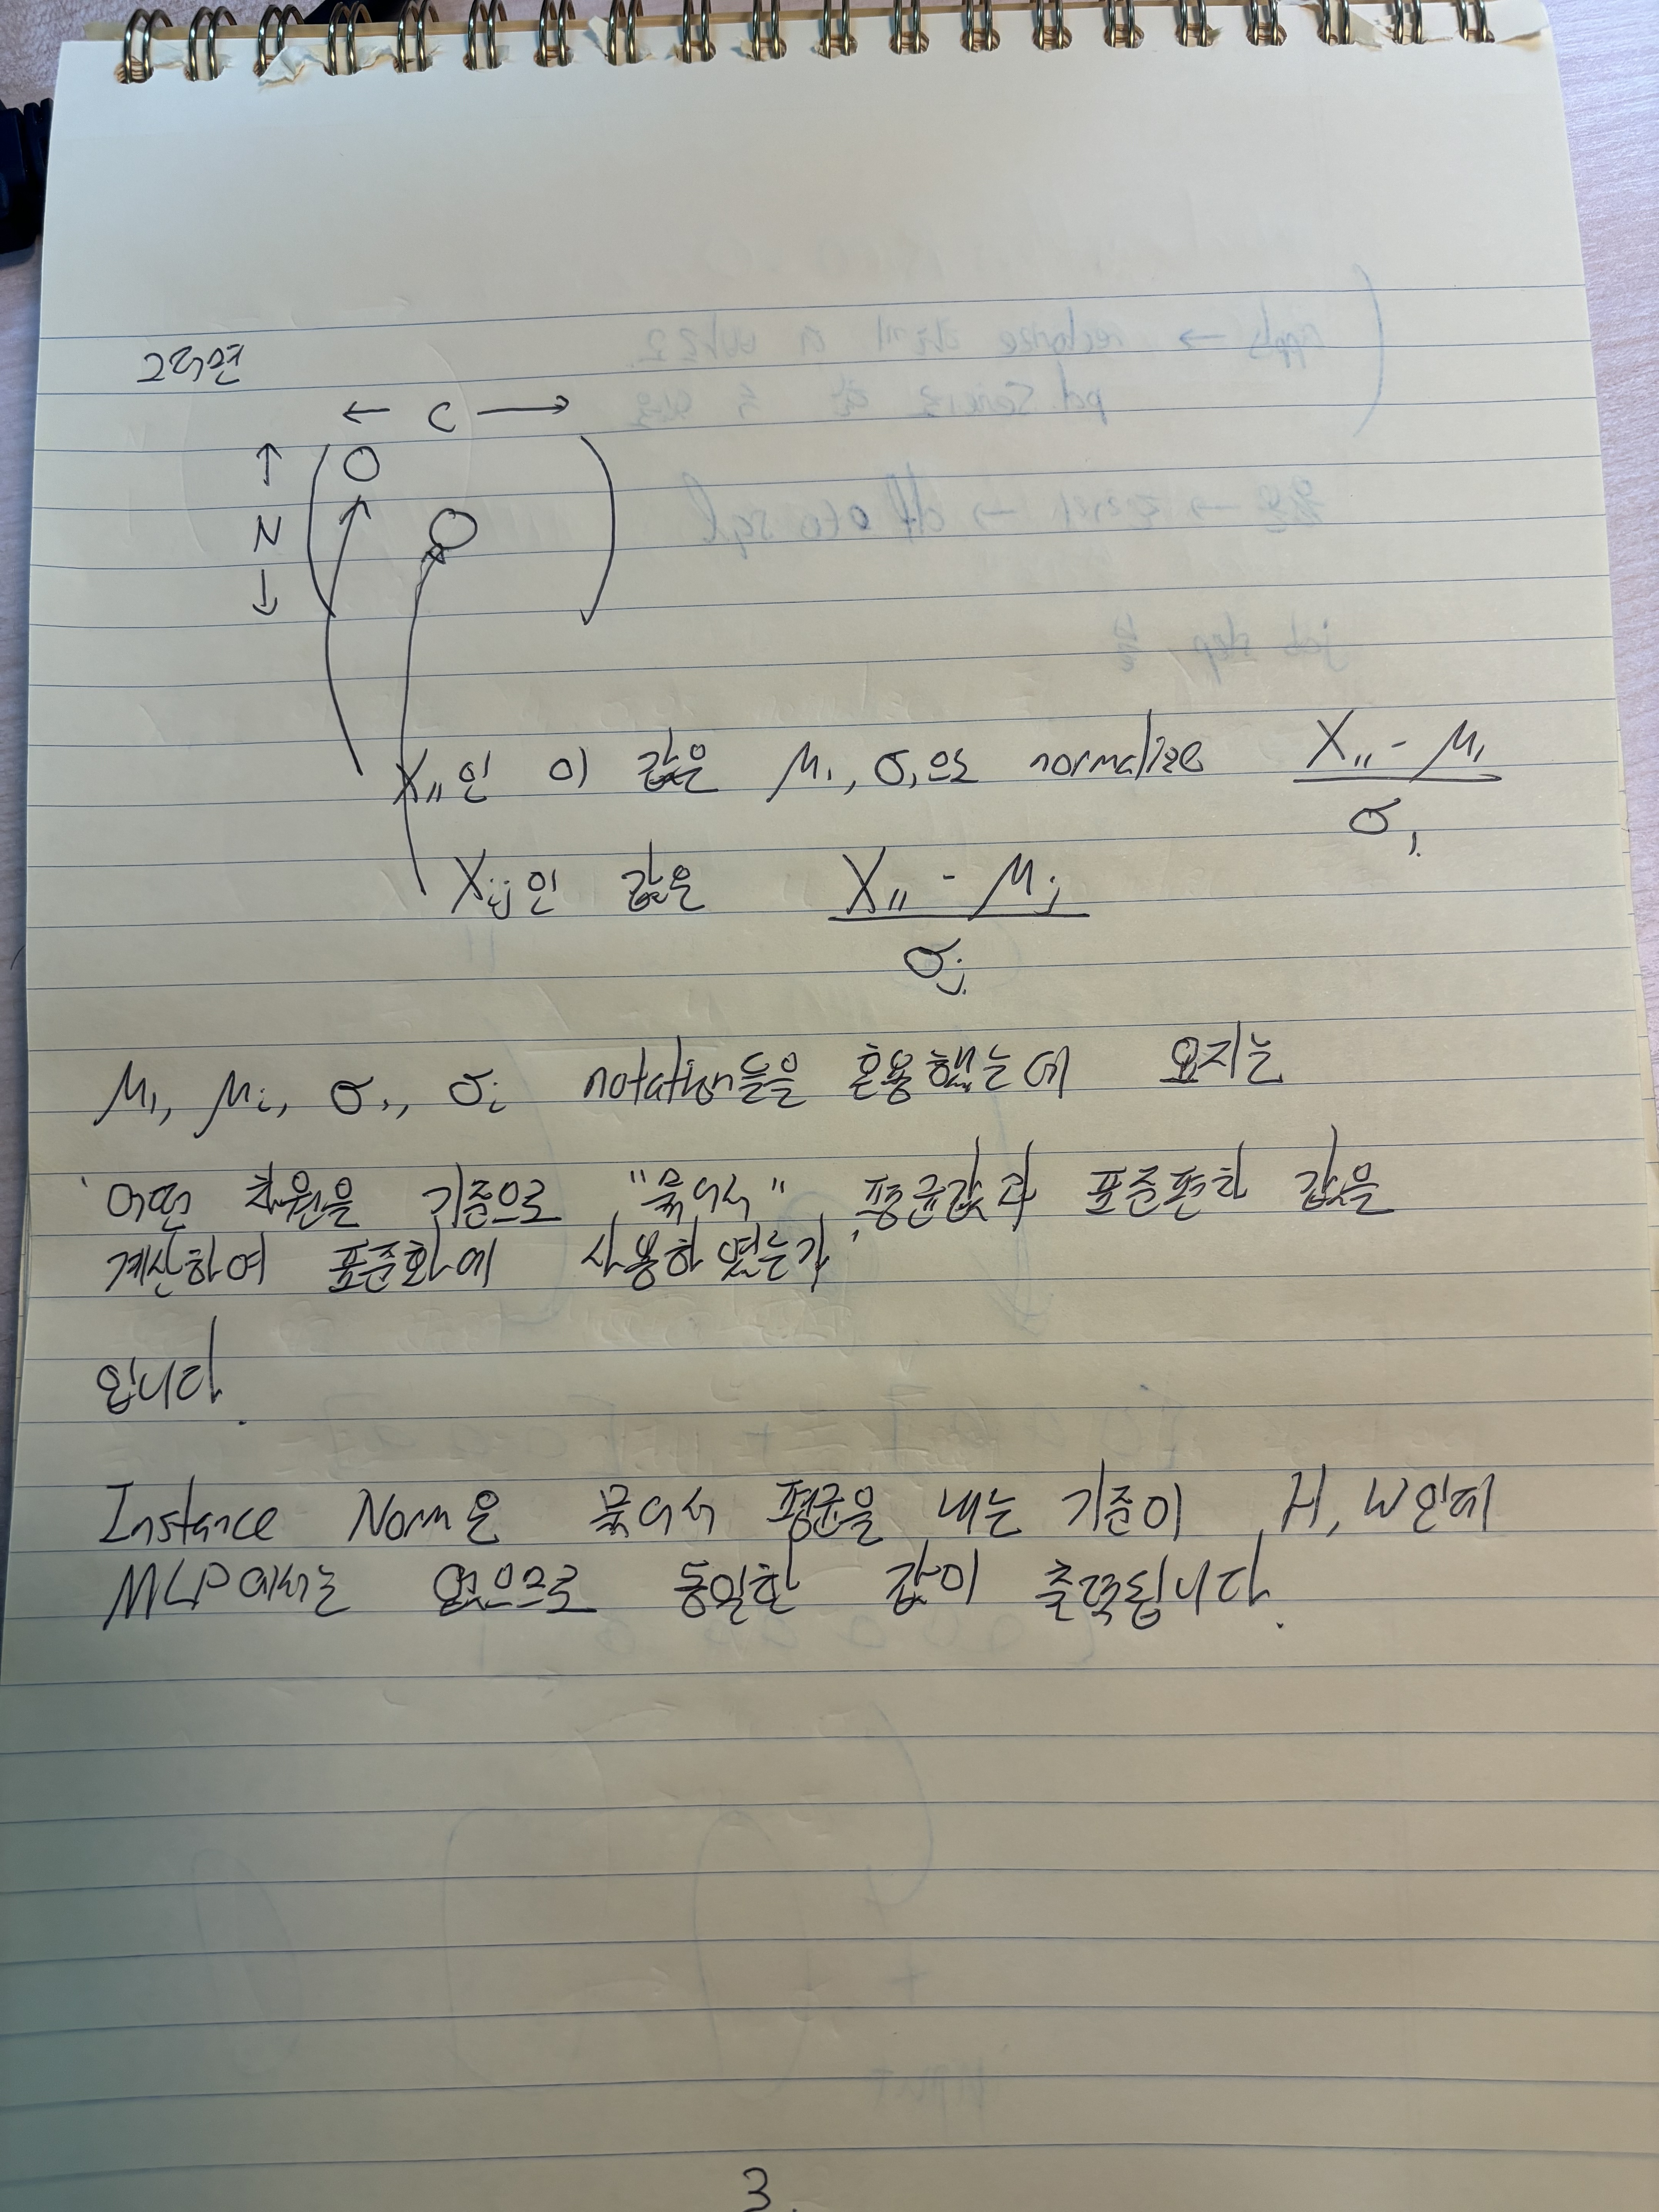 그러면
← C →
↑
N
↓
X₁₁인 이 값은 μ₁, σ₁으로 normalize (X₁₁ - μ₁) / σ₁
Xᵢⱼ인 값은 (X₁₁ - μⱼ) / σⱼ
μ₁, μᵢ, σ₁, σᵢ notation들을 혼용했는데 요지는
'어떤 차원을 기준으로 "묶어서" 평균값과 표준편차 값을
계산하여 표준화에 사용하였는가'
입니다.
Instance Norm은 묶어서 평균을 내는 기준이 H, W인데
MLP에서는 없으므로 동일한 값이 출력됩니다.
3.